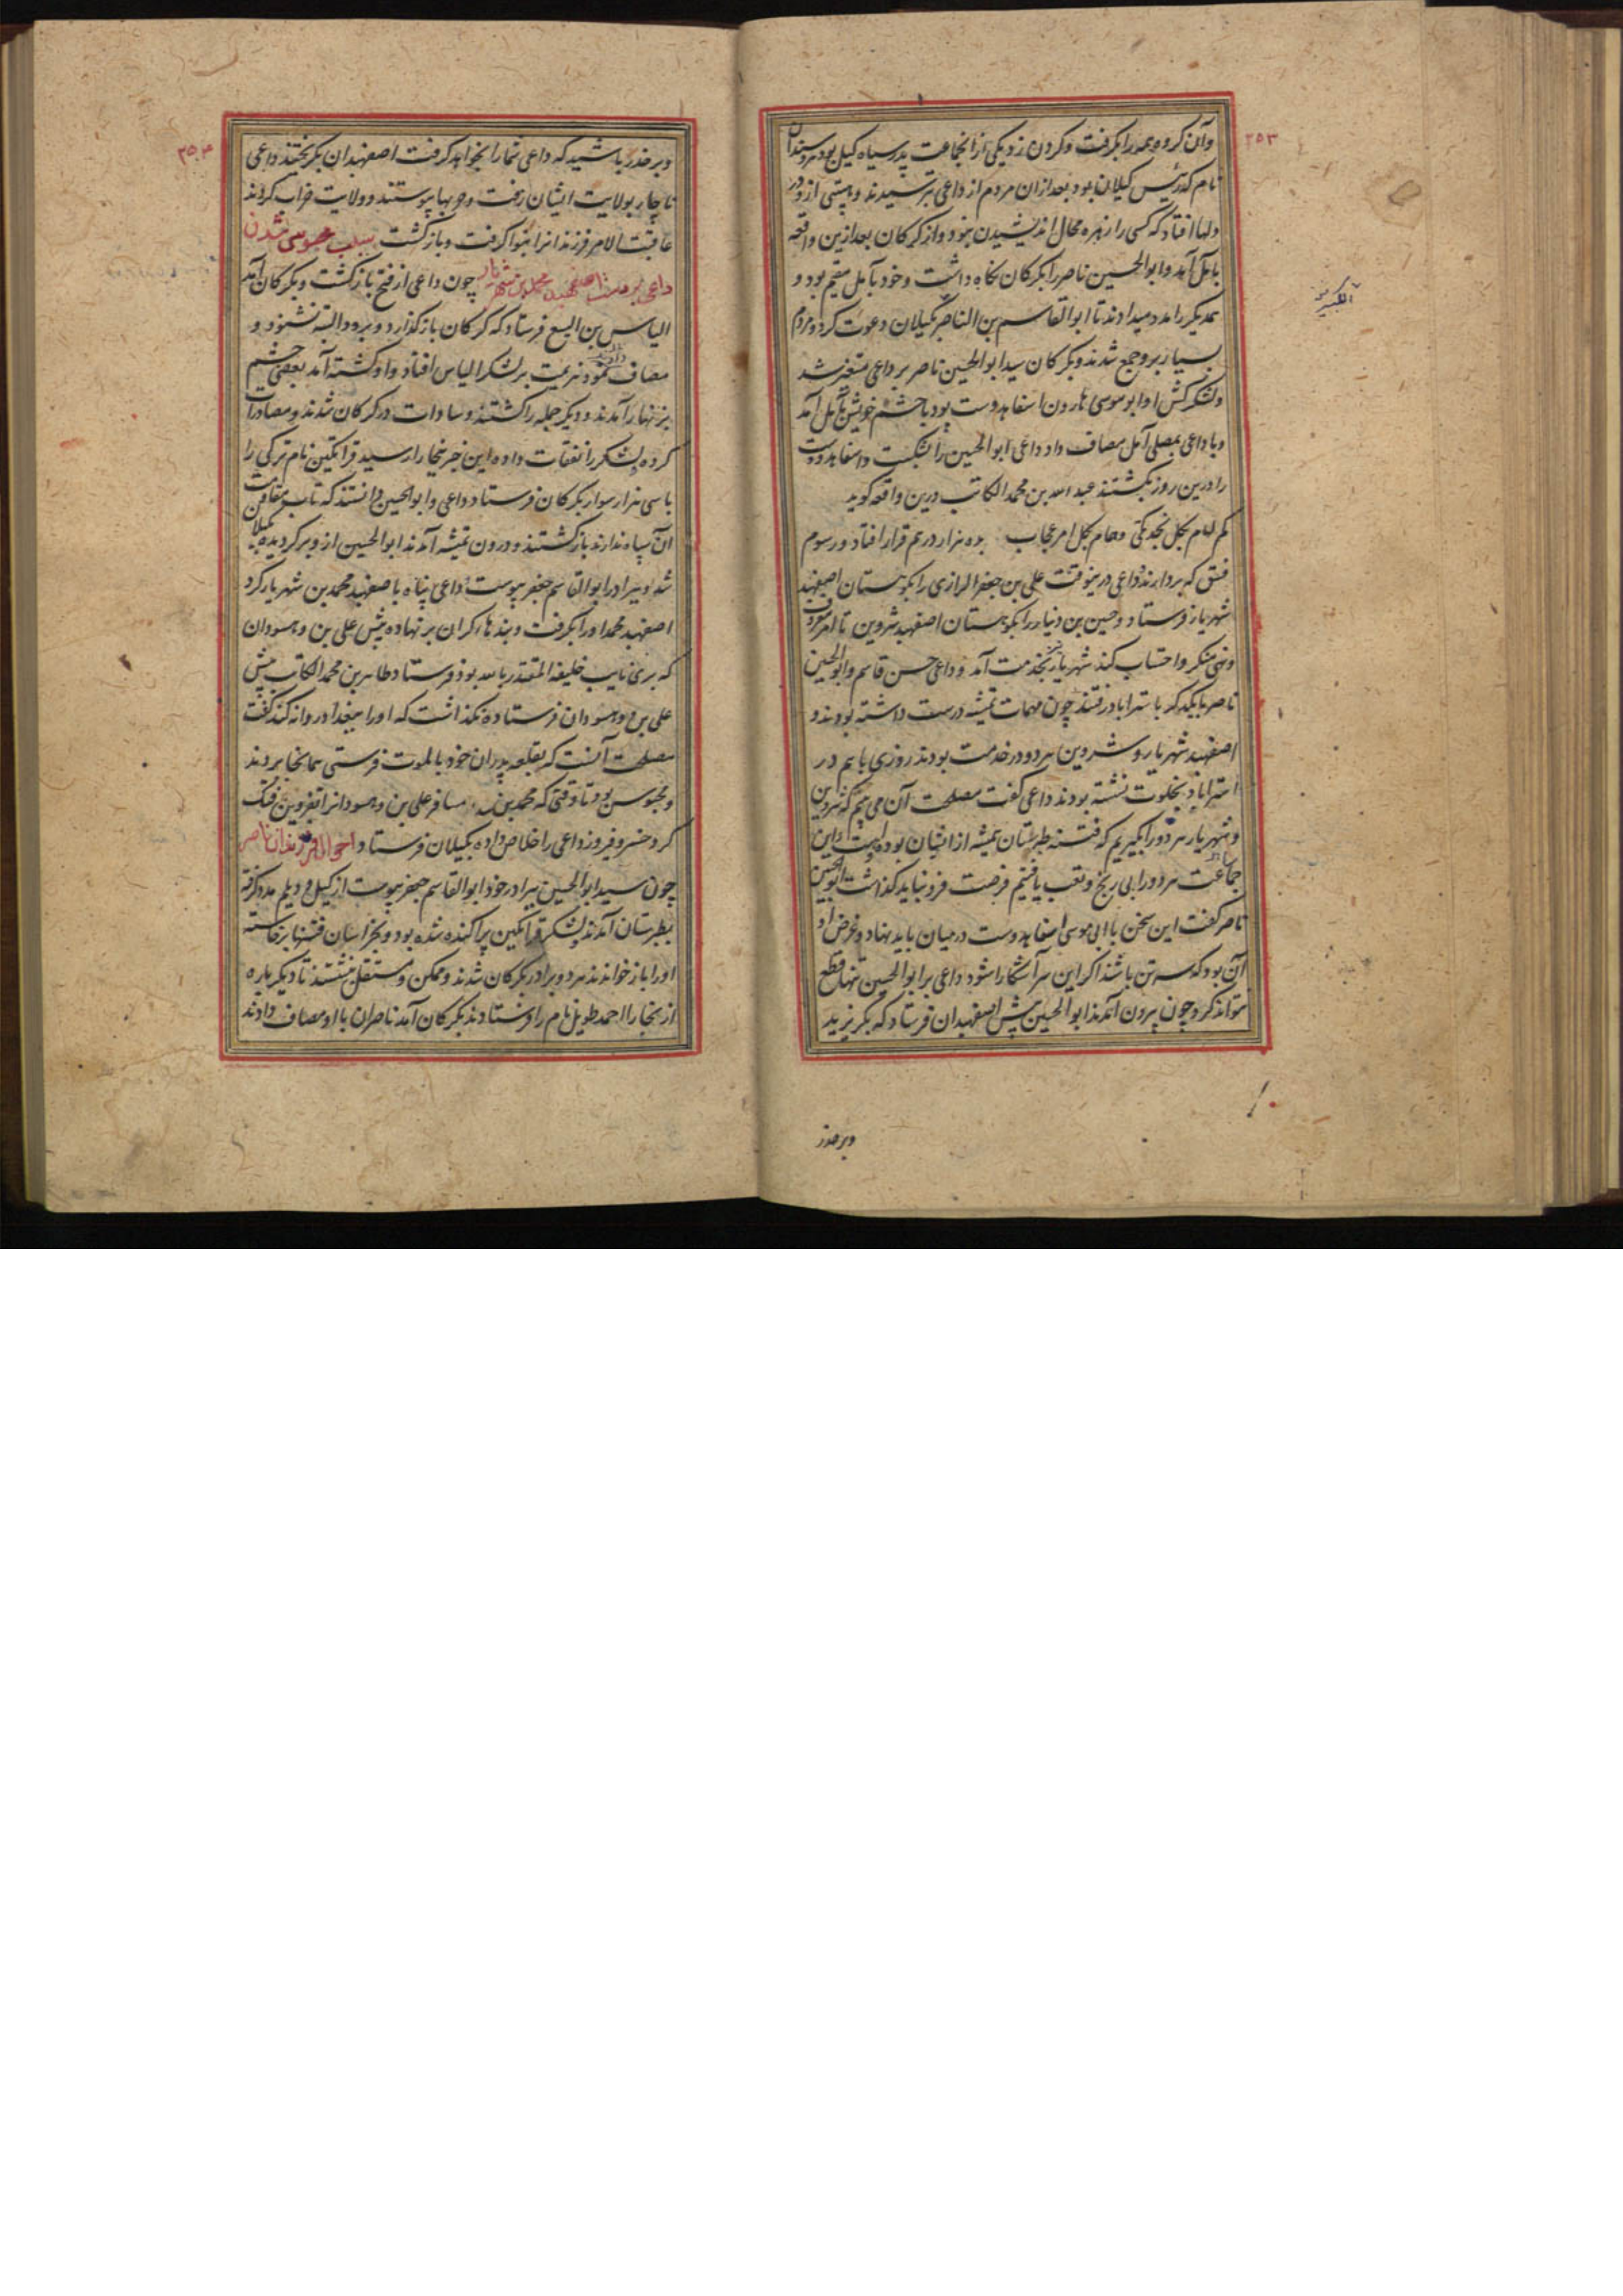 ۲۵۳
وآن کروه همه را بکرفت و کردن زد یکی از انجماعت پدر سیاه کیل بود هروسندان
نام که رئیس کیلان بود بعد ازان مردم از داعی بترسیدند و هیبتی ازو در
دلها افتاد که کسی را زهره محال اندیشیدن نبود و از کرکان بعد ازین واقعه
بآمل آمد و ابوالحسین ناصر را بکرکان نکاه داشت و خود بآمل مقیم بود و
همدیکر را مدد میدادند تا ابوالقاسم بن الناصر بکیلان دعوت کرد و مردم
بسیار برو جمع شدند و بکرکان سید ابوالحسین ناصر بر داعی متغیر شد
ولشکرکش او ابو موسی هارون اسفاهدوست بود با حشم خویش بآمل آمد
و با داعی بمصلی آمل مصاف داد داعی ابوالحسین را بشکست و اسفاهدوست
را درین روز بکشتند عبد الله بن محمد الکاتب درین واقعه کوید
بده هزار درهم قرار افتاد و رسوم
فسق که بردارند داعی درینوقت علی بن جعفر الرازی را بکوهستان اصفهبد
شهریار فرستاد و حسین بن دینار را بکوهستان اصفهبد شروین تا امر معروف
ونهی منکر و احتساب کند شهریار بخدمت آمد و داعی حسن قاسم و ابوالحسین
ناصر با یکدکر باستراباد رفتند چون مهمات تمیشه درست داشته بودند و
اصفهبد شهریار و شروین هر دو در خدمت بودند روزی با هم در
استراباد بخلوت نشسته بودند داعی کفت مصلحت آن می بینم که شروین
و شهریار هر دو را بکیریم که فتنه طبرستان همیشه از ایشان بوده است و این
جماعت هر دو را بی رنج و تعب یافتیم فرصت فرو نباید کذاشت ابوالحسین
ناصر کفت این سخن با ابی موسی اسفاهدوست در میان باید نهاد و غرض او
آن بود که سه تن باشند اکر این سر آشکارا شود داعی بر ابوالحسین تنها قطع
نتواند کرد چون بیرون آمدند ابوالحسین پیش اصفهبدان فرستاد که بکریزید
وبر حذر
۲۵۴
وبر حذر باشید که داعی شما را بخواهد کرفت اصفهبدان بکریختند داعی
ناچار بولایت ایشان رفت و حربها پیوستند و ولایت خراب کردند
عاقبت الامر فرزندانرا بنوا کرفت و بازکشت سبب محبوس شدن
داعی بر دست اصفهبد محمد بن شهریار چون داعی از فتح بازکشت و بکرکان آمد
الیاس بن الیسع فرستاد که کرکان بازکذارد و برود البته نشنود و
مصاف نمود هزیمت بر لشکر الیاس افتاد و او کشته آمد بعضی حشم
بزنهار آمدند و دیکر جمله را کشتند و سادات در کرکان شدند و مصادرات
کرده لشکر را نفقات داده این خبر ببخارا رسید قراتکین نام ترکی را
با سی هزار سوار بکرکان فرستاد داعی و ابوالحسین دانستند که تاب مقاومت
آن سپاه ندارند بازکشتند و درون تمیشه آمدند ابوالحسین از وبر کردیده بکیلان
شد و ببرادر ابوالقاسم جعفر پیوست داعی پناه باصفهبد محمد بن شهریار کرد
اصفهبد محمد او را بکرفت و بندهاء کران بر نهاده پیش علی بن وهسودان
که بری نایب خلیفه المقتدر بالله بود فرستاد طاهر بن محمد الکاتب پیش
علی بن وهسودان فرستاده نکذاشت که او را ببغداد روانه کند کفت
مصلحت آنست که بقلعه پدران خود بالموت فرستی همانجا بردند
و محبوس بود تا وقتی که محمد بن مسافر علی بن وهسودانرا بقزوین فتک
کرد خسرو فیروز داعی را خلاص داده بکیلان فرستاد احوال فرزندان ناصر
چون سید ابوالحسین ببرادر خود ابوالقاسم جعفر پیوست از کیل و دیلم مدد کرفته
بطبرستان آمدند لشکر قراتکین پراکنده شده بود و بخراسان فتنها برخاسته
او را باز خواندند هر دو برادر بکرکان شدند و ممکن و مستقل بنشستند تا دیکرباره
از بخارا احمد طویل نام را فرستادند بکرکان آمد ناصران با او مصاف دادند